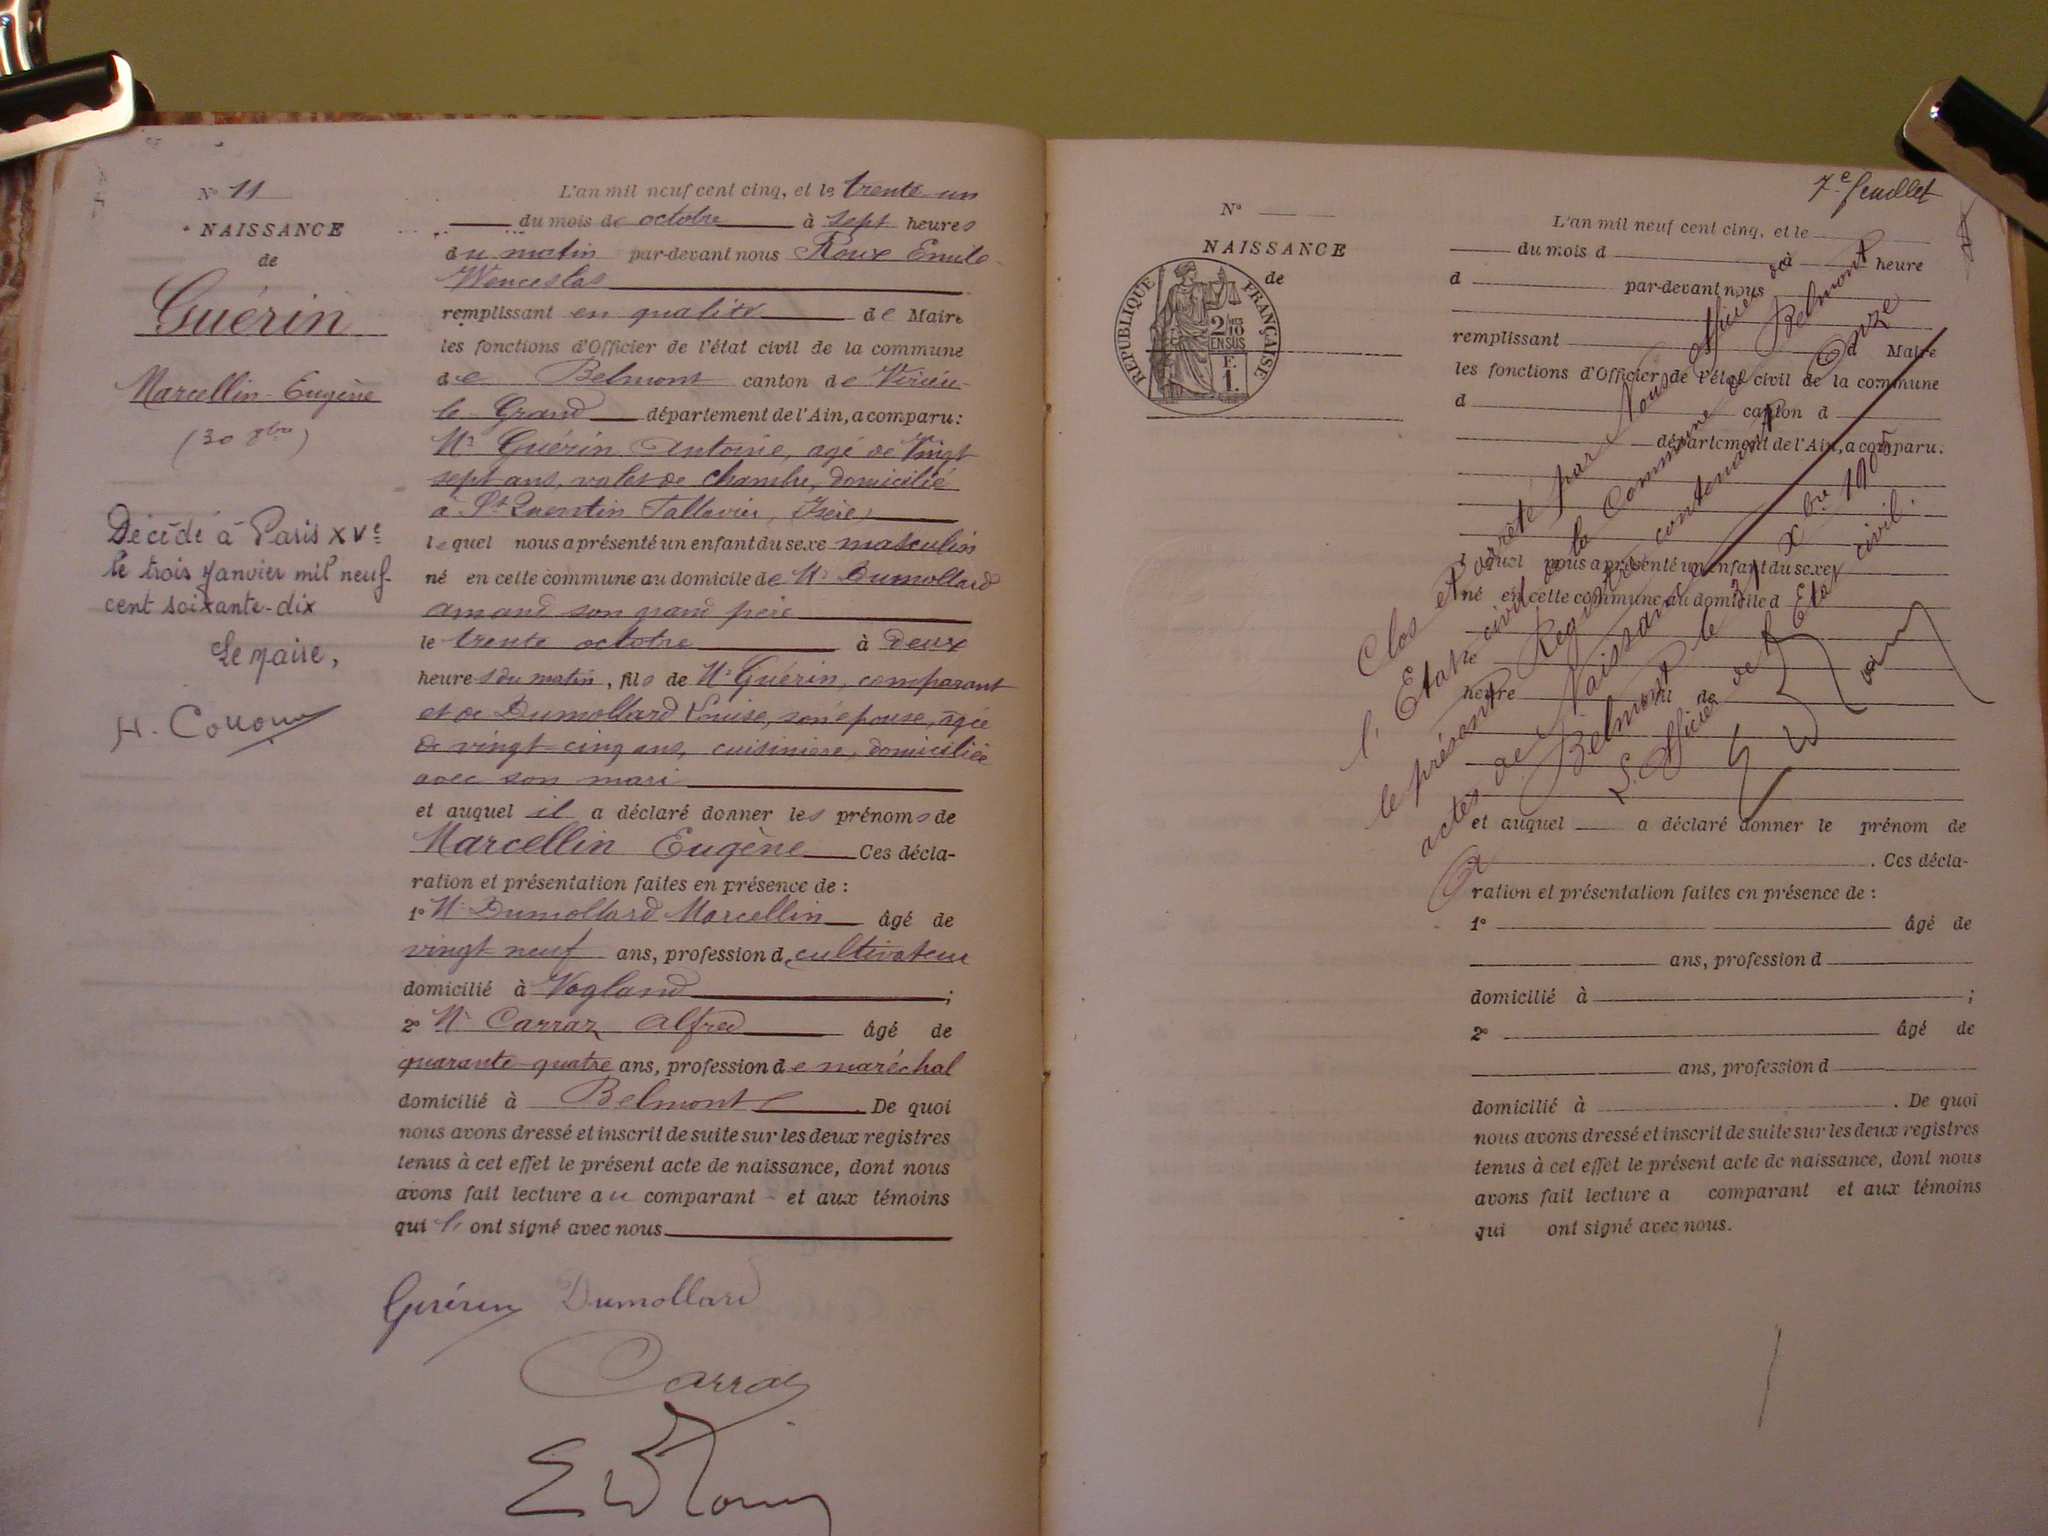 N° 11
NAISSANCE
de
Guérin
Marcellin-Eugène
(30 8bre)
Décédé à Paris XVe
le trois Janvier mil neuf
cent soixante-dix
Le Maire,
L'an mil neuf cent cinq, et le trente un
du mois de octobre à sept heures
du matin par-devant nous Roux Emile
Wenceslas
remplissant en qualité de Maire
les fonctions d'Officier de l'état civil de la commune
de Belmont canton de Virieu-
le Grand département de l'Ain, a comparu:
Mr Guérin Antoine, agé de Vingt
sept ans, valet de chambre, domicilié
à St Quentin Fallavier, Isère,
lequel nous a présenté un enfant du sexe masculin
né en cette commune au domicile de Mr Dumollard
Amand son grand père
le trente octobre à Deux
heures du matin, fils de Mr Guérin, comparant
et de Dumollard Louise, son épouse, agée
de vingt-cinq ans, cuisinière, domiciliée
avec son mari
et auquel il a déclaré donner les prénoms de
Marcellin Eugène Ces décla-
ration et présentation faites en présence de :
1° Mr Dumollard Marcellin âgé de
vingt neuf ans, profession d cultivateur
domicilié à Vogland ;
2° Mr Carraz Alfred âgé de
quarante-quatre ans, profession de maréchal
domicilié à Belmont. De quoi
nous avons dressé et inscrit de suite sur les deux registres
tenus à cet effet le présent acte de naissance, dont nous
avons fait lecture au comparant et aux témoins
qui ont signé avec nous
Guérin Dumollard
Carraz
7e feuillet
N°
NAISSANCE
de
RÉPUBLIQUE FRANÇAISE
2/10
EN SUS
F.
1.
L'an mil neuf cent cinq, et le
du mois d à heure
d par-devant nous
remplissant d Maire
les fonctions d'Officier de l'état civil de la commune
d canton d
département de l'Ain, a comparu:
lequel nous a présenté un enfant du sexe
né en cette commune au domicile d
heure
et auquel a déclaré donner le prénom de
. Ces décla-
ration et présentation faites en présence de :
1° âgé de
ans, profession d
domicilié à ;
2° âgé de
ans, profession d
domicilié à . De quoi
nous avons dressé et inscrit de suite sur les deux registres
tenus à cet effet le présent acte de naissance, dont nous
avons fait lecture a comparant et aux témoins
qui ont signé avec nous.
Clos et arrêté par Nous officier de
l'Etat civil de la Commune de Belmont
le présent Registre contenant Onze
actes de Naissance
Belmont le 31 Xbre 1905
L'officier de l'Etat civil.